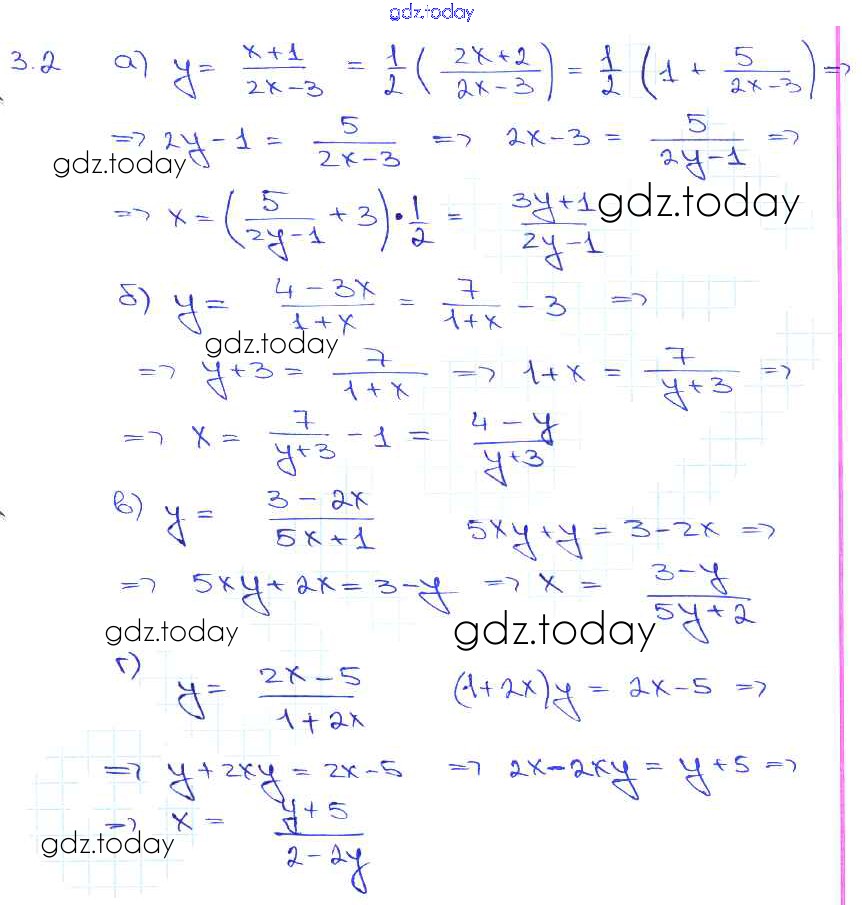 gdz.today
3.2 а) y = (x+1)/(2x-3) = 1/2 ( (2x+2)/(2x-3) ) = 1/2 ( 1 + 5/(2x-3) ) =>
=> 2y-1 = 5/(2x-3) => 2x-3 = 5/(2y-1) =>
gdz.today
=> x = ( 5/(2y-1) + 3 ) · 1/2 = (3y+1)/(2y-1) gdz.today
б) y = (4-3x)/(1+x) = 7/(1+x) - 3 =>
gdz.today
=> y+3 = 7/(1+x) => 1+x = 7/(y+3) =>
=> x = 7/(y+3) - 1 = (4-y)/(y+3)
в) y = (3-2x)/(5x+1) 5xy+y = 3-2x =>
=> 5xy+2x = 3-y => x = (3-y)/(5y+2)
gdz.today gdz.today
г) y = (2x-5)/(1+2x) (1+2x)y = 2x-5 =>
=> y+2xy = 2x-5 => 2x-2xy = y+5 =>
=> x = (y+5)/(2-2y)
gdz.today